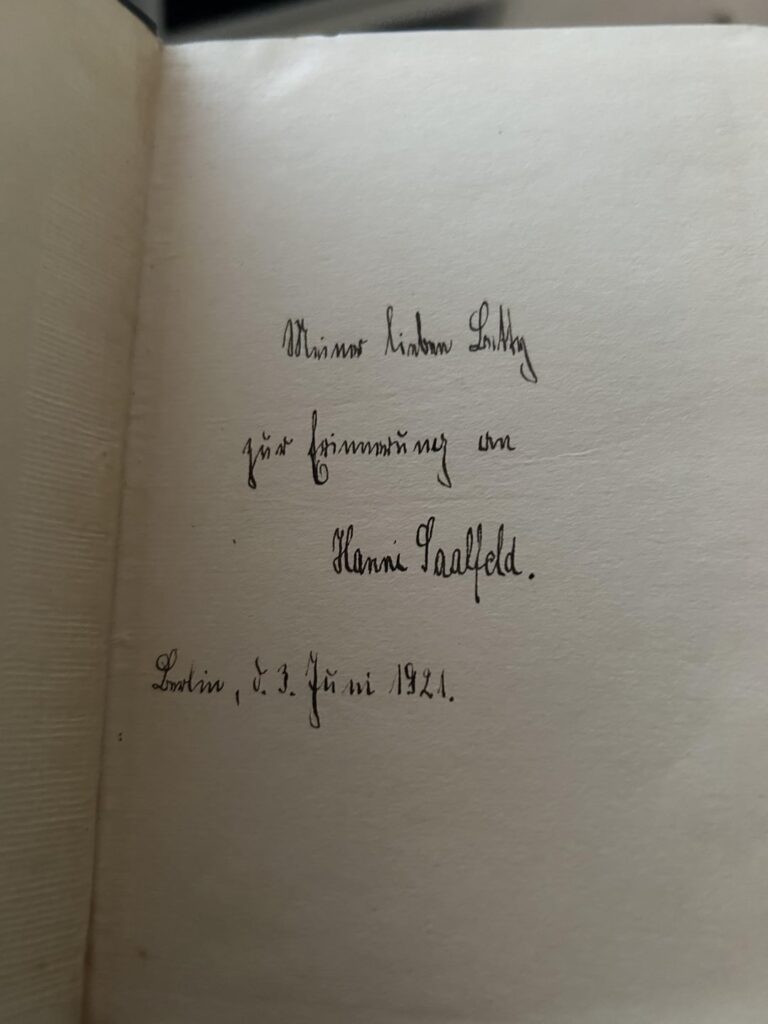 Meiner lieben Betty
zur Erinnerung an
Hanni Saalfeld.
Berlin, d. 3. Juni 1921.